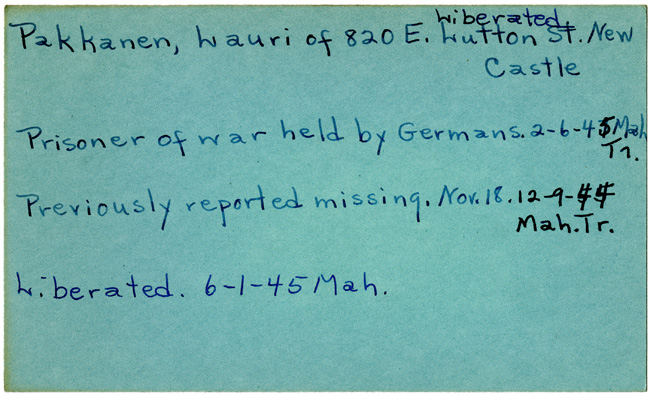 Liberated.
Pakkanen, Lauri of 820 E. Lutton St. New
Castle
Prisoner of war held by Germans. 2-6-45 Mah
Tr.
Previously reported missing. Nov. 18. 12-9-44
Mah. Tr.
Liberated. 6-1-45 Mah.